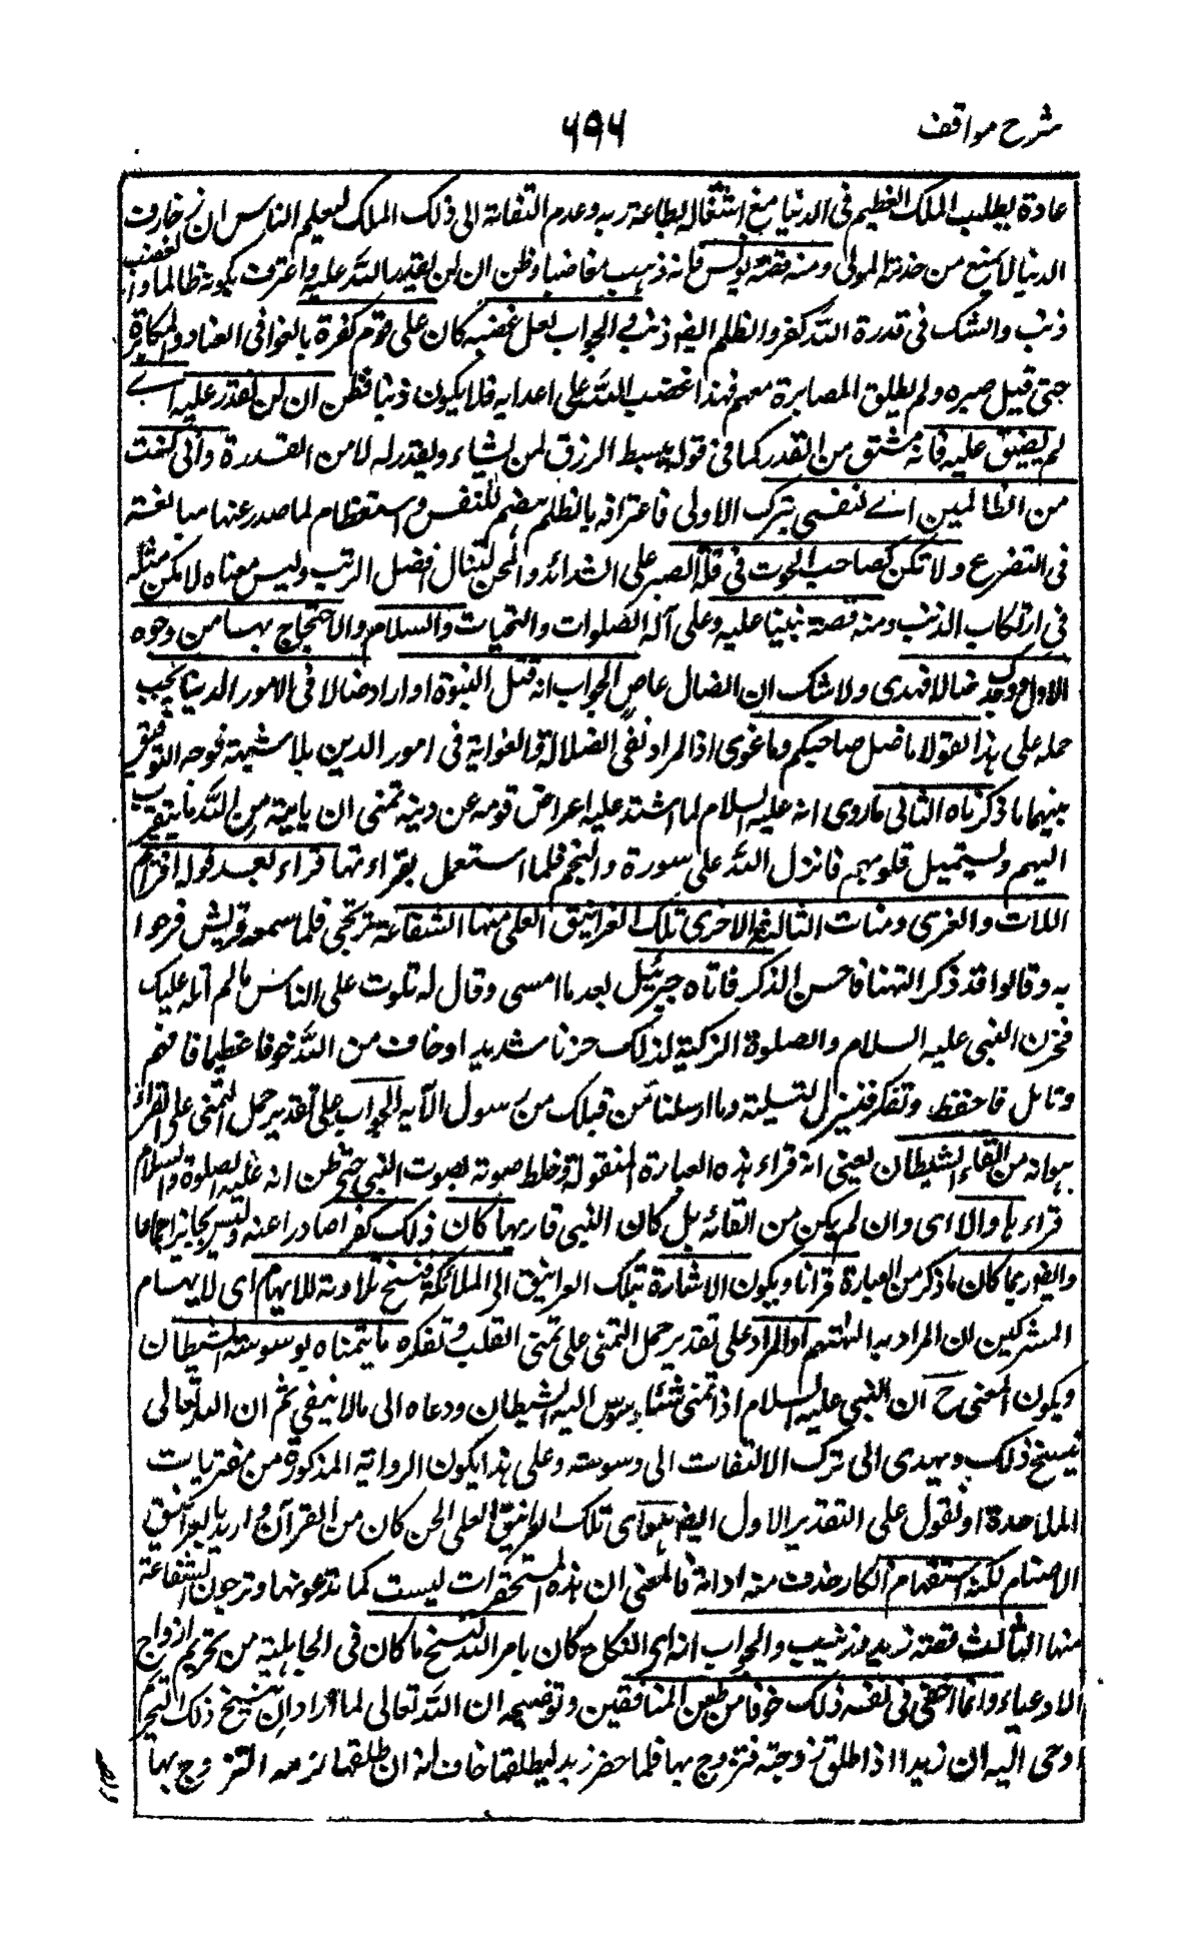 شرح مواقف
٦٩٦
عادة بطلب الملك العظيم فى الدنيا مع اشتغاله بطاعة ربه وعدم التفاته الى ذلك الملك ليعلم الناس ان زخارف
الدنيا لا تمنع من خدمة المولى ومنه قصة يونس فانه ذهب مغاضبا وظن ان لن يقدر الله عليه واعترف بكونه ظالما والغضب
ذنب والشك فى قدرة الله كفر والظلم ايضا ذنب والجواب لعل غضبه كان على قوم كفرة بالغوا فى العناد والمكابرة
حتى قيل صبره ولم يطق المصابرة معهم فهذا غضب الله على اعدايه فلا يكون ذنبا فظن ان لن نقدر عليه اے
لم يضيق عليه فانه مشتق من القدر كما فى قوله يبسط الرزق لمن يشاء ويقدر له لا من القدرة وانى كنت
من الظالمين اے لنفسى بترك الاولى فاعترافه بالظلم هضم للنفس واستعظام لما صدر عنها مبالغة
فى التضرع ولا تكن كصاحب الحوت فى قلة الصبر على الشدائد والمحن لتنال افضل الرتب وليس معناه لا تكن مثله
فى ارتكاب الذنب ومنه قصة نبينا عليه وعلى آله الصلوات والتحيات والسلام والاحتجاج بها من وجوه
الاول ووجدك ضالا فهدى ولا شك ان الضال عاص الجواب انه قبل النبوة او اراد ضالا فى الامور الدنيا يجب
حمله على هذا لقوله ما ضل صاحبكم وما غوى اذ المراد نفى الضلالة والغواية فى امور الدين بلا شبهة فوجه التوفيق
بينهما ما ذكرناه الثانى ما روى انه عليه السلام لما اشتد عليه اعراض قومه عن دينه تمنى ان ياتيه من الله ما يتقرب
اليهم ويستميل قلوبهم فانزل الله على سورة والنجم فلما استعمل بقراءتها قراء بعد قوله افرأيتم
اللات والعزى ومنات الثالثة الاخرى تلك الغرانيق العلى منها الشفاعة ترتجى فلما سمعه قريش فرحوا
به وقالوا قد ذكر الهتنا فاحسن الذكر فاتاه جبرئيل بعد ما امسى وقال له تلوت على الناس ما لم اتله عليك
فحزن النبى عليه السلام والصلوة الزكية لذلك حزنا شديدا وخاف من الله خوفا عظيما فافهم
وتامل فاحفظ وتفكر فنزل لتسليته وما ارسلنا من قبلك من رسول الآية الجواب على تقدير حمل التمنى على القراءة
هو انه من القاء الشيطان يعنى انه قراء هذه العبارة المنقولة وخلط صوته بصوت النبى حتى ظن انه عليه الصلوة والسلام
قراء ها والا اى وان لم يكن من القائه بل كان النبى قاريها كان ذلك كفرا صادرا عنه وليس بجايز اجماعا
وايضا ربما كان ما ذكر من العبارة قرانا ويكون الاشارة بتلك الغرانيق الى الملائكة فنسخ تلاوته للايهام اى لايهام
المشركين ان المراد به الهتهم او المراد على تقدير حمل التمنى على تمنى القلب وتفكره ما يتمناه بوسوسة الشيطان
ويكون المعنى ح ان النبى عليه السلام اذا تمنى شيئا وسوس اليه الشيطان ودعاه الى ما لا ينبغى ثم ان الله تعالى
ينسخ ذلك ويهدى الى ترك الالتفات الى وسوسته وعلى هذا يكون الرواية المذكورة من مفتريات
الملاحدة او نقول على التقدير الاول ايضا هو اى تلك الغرانيق العلى الخ كان من القرآن واريد بالغرانيق
الاصنام لكنه استفهام انكار حذف منه اداته فالمعنى ان هذه المستحقرات ليست كما تدعونها وترجون الشفاعة
منها الثالث قصة زيد وزينب والجواب انه اى النكاح كان بامر الله لنسخ ما كان فى الجاهلية من تحريم ازواج
الادعياء وانما اخفى فى نفسه ذلك خوفا من طعن المنافقين وتوضيحه ان الله تعالى لما اراد ان ينسخ ذلك التحريم
اوحى اليه ان زيدا اذا طلق زوجته فتزوج بها فلما حضر زيد ليطلقها خاف انه ان طلقها لزمه التزوج بها